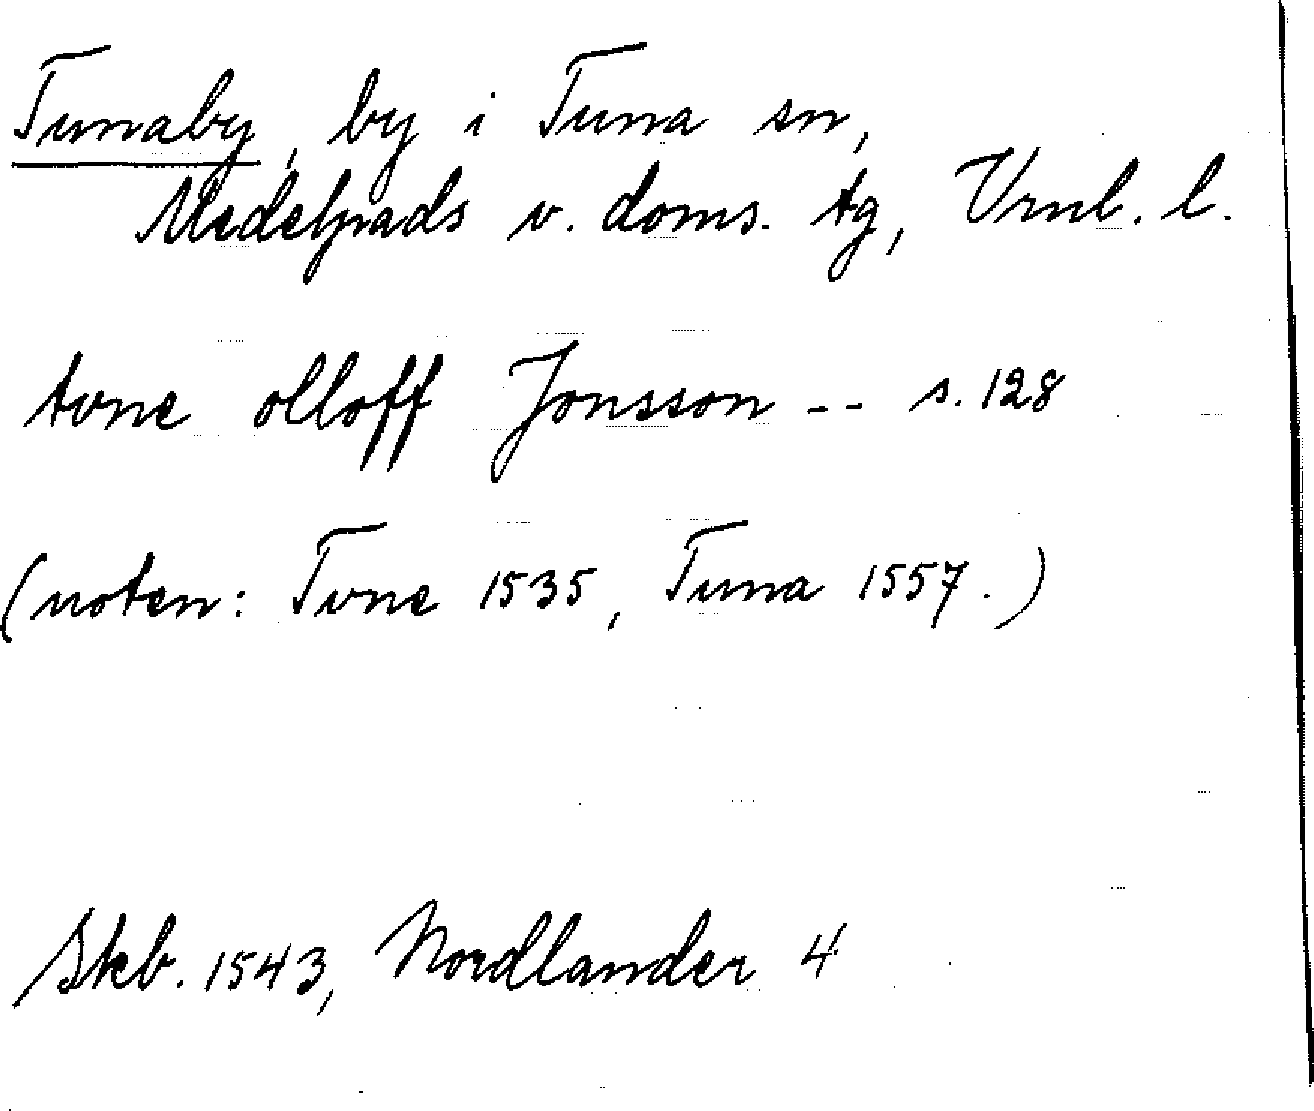 Tunaby, by i Tuna sn,
Medelpads v. doms. tg, Vrnl. l.
tvne olloff Jonsson -- s. 128
(noten: Tvne 1535, Tuna 1557.)
Skb. 1543, Nordlander 4